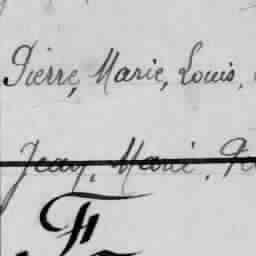 Pierre, Marie, Louis,
Jean, Marie,